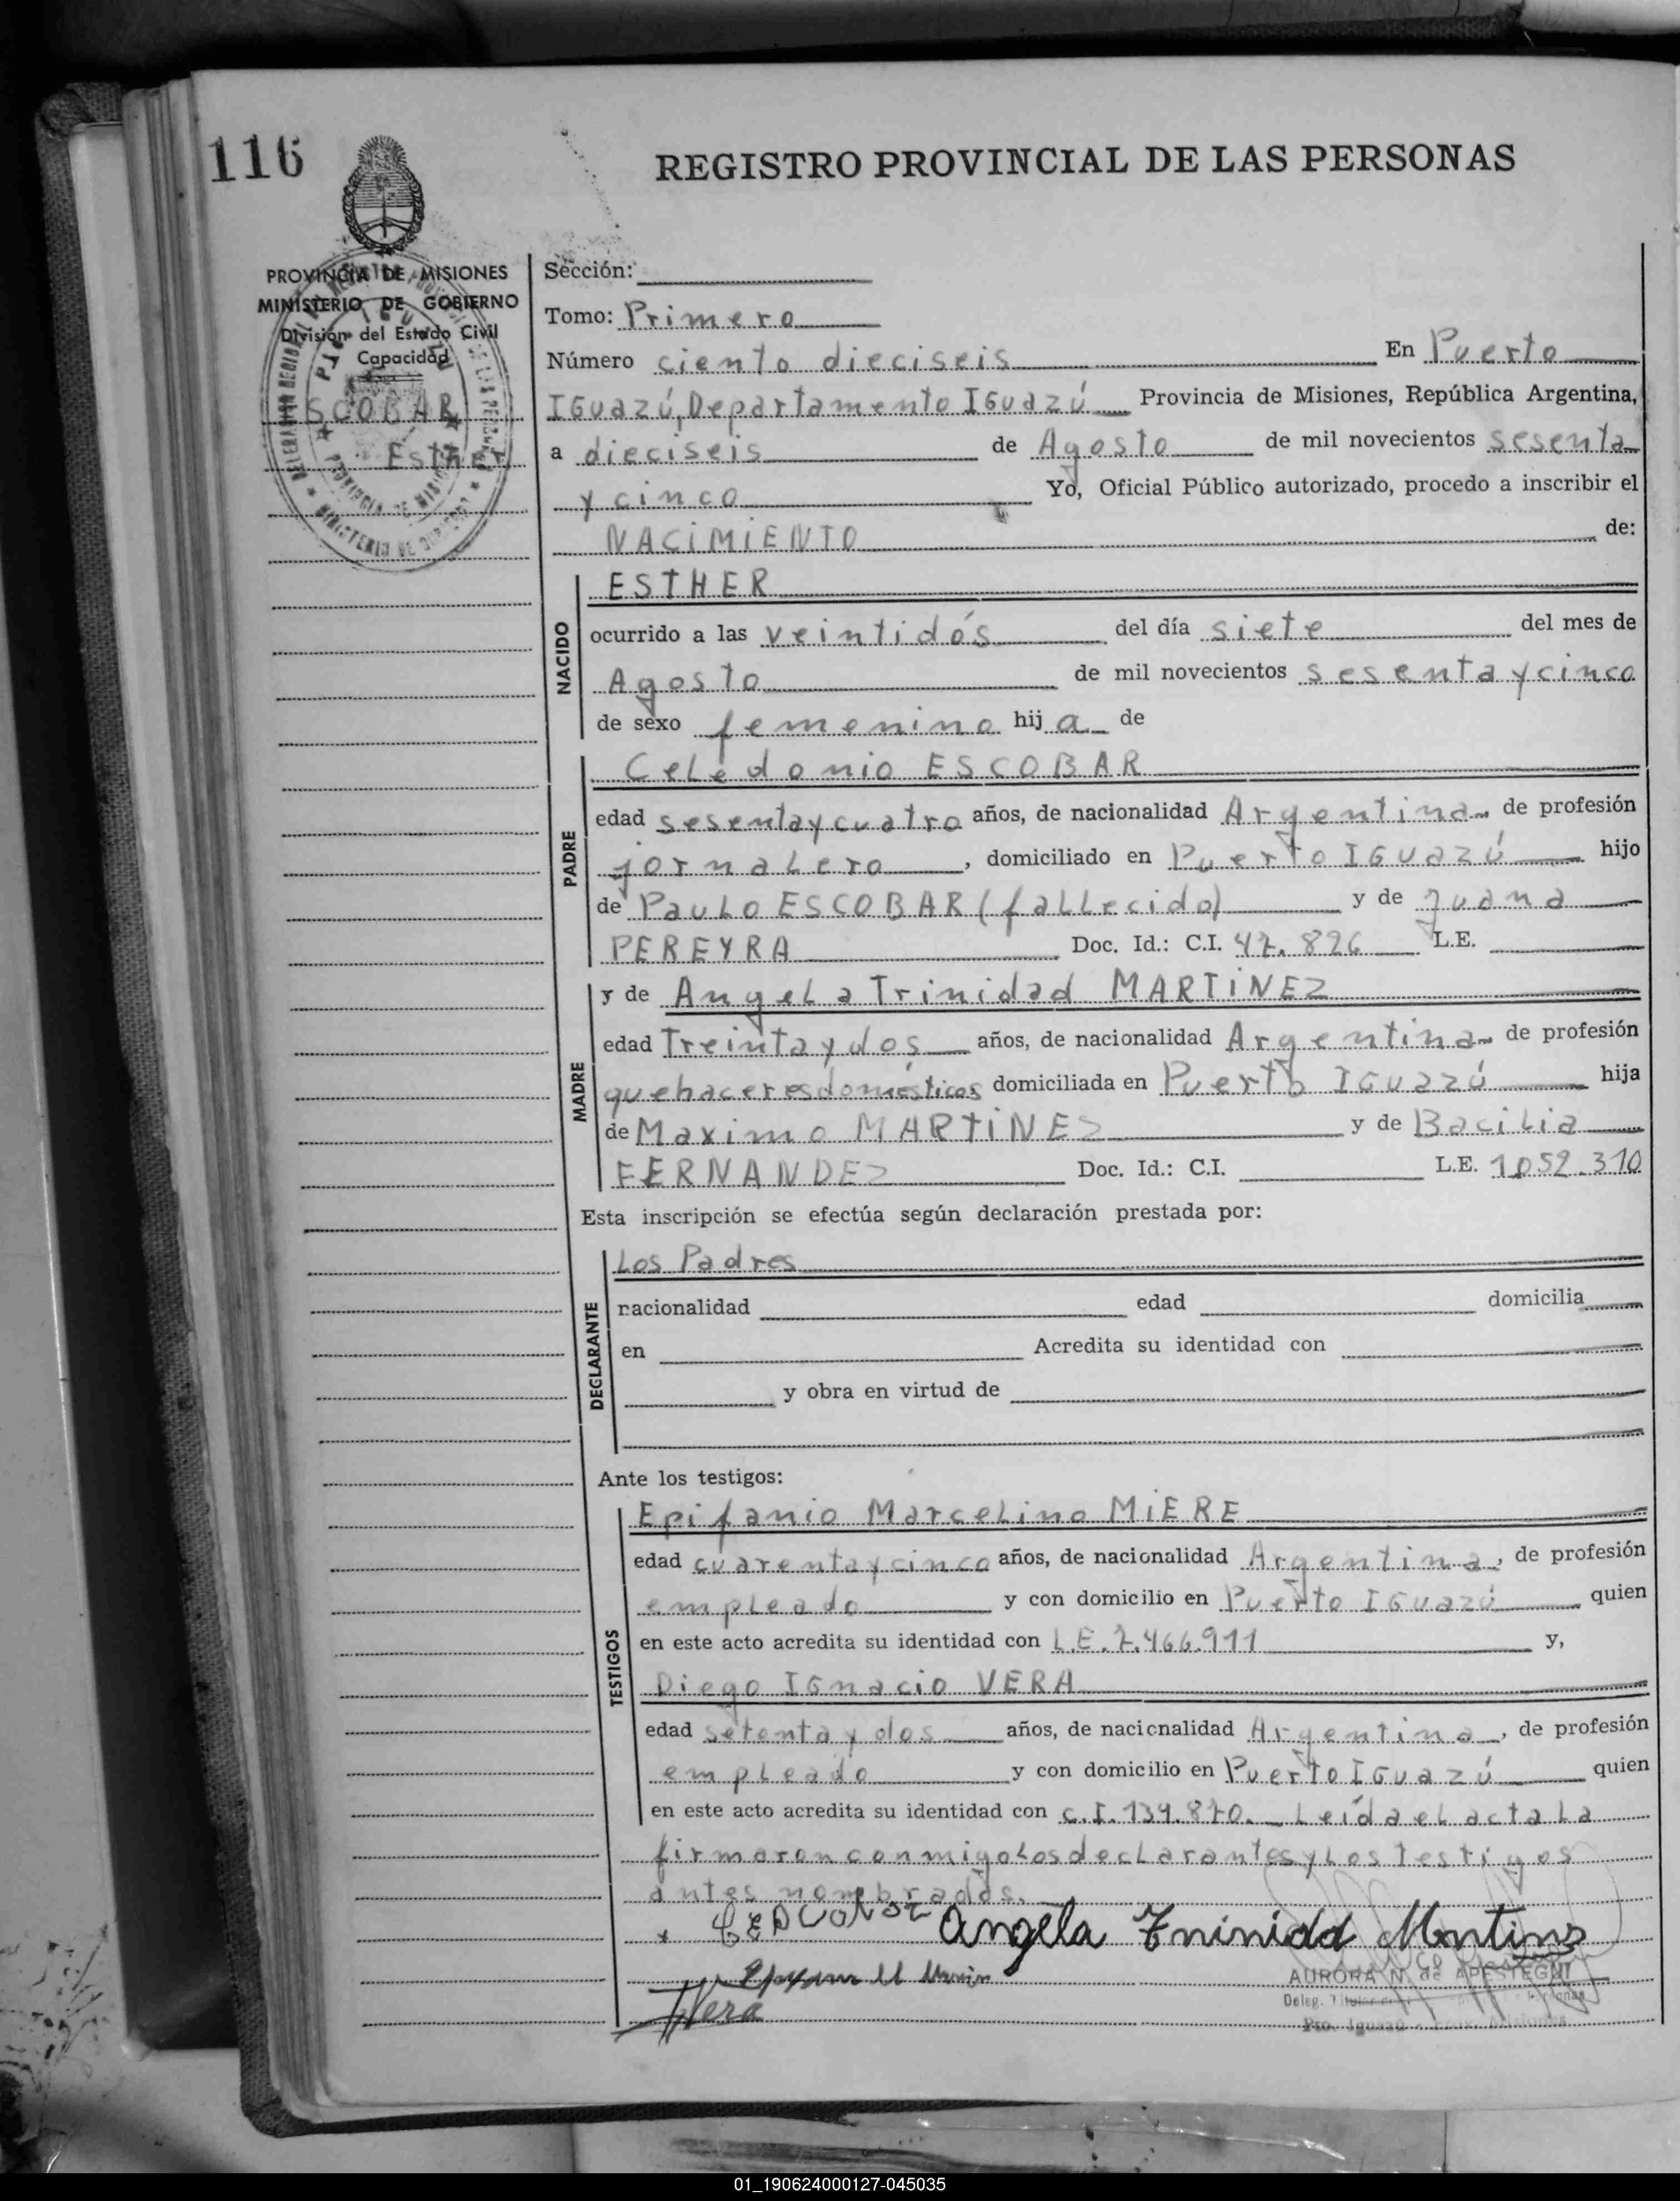 116
REGISTRO PROVINCIAL DE LAS PERSONAS
PROVINCIA DE MISIONES
MINISTERIO DE GOBIERNO
División del Estado Civil
Capacidad
ESCOBAR
Esther
Sección:
Tomo: Primero
Número ciento dieciseis En Puerto
IGuazú, Departamento IGuazú Provincia de Misiones, República Argentina,
a dieciseis de Agosto de mil novecientos sesenta
y cinco Yo, Oficial Público autorizado, procedo a inscribir el
NACIMIENTO de:
NACIDO
ESTHER
ocurrido a las veintidós del día siete del mes de
Agosto de mil novecientos sesenta y cinco
de sexo femenino hija de
PADRE
Celedonio ESCOBAR
edad sesenta y cuatro años, de nacionalidad Argentina de profesión
jornalero, domiciliado en Puerto IGuazú hijo
de Paulo ESCOBAR (fallecido) y de Juana
PEREYRA Doc. Id.: C.I. 47.826 L.E.
MADRE
y de Angela Trinidad MARTINEZ
edad Treinta y dos años, de nacionalidad Argentina de profesión
quehaceres domésticos domiciliada en Puerto IGuazú hija
de Maximo MARTINEZ y de Bacilia
FERNANDEZ Doc. Id.: C.I. L.E. 1.052.310
Esta inscripción se efectúa según declaración prestada por:
DECLARANTE
Los Padres
nacionalidad edad domicilia
en Acredita su identidad con
y obra en virtud de
Ante los testigos:
TESTIGOS
Epifanio Marcelino MIERE
edad cuarenta y cinco años, de nacionalidad Argentina, de profesión
empleado y con domicilio en Puerto IGuazú quien
en este acto acredita su identidad con L.E. 7.466.911 y,
Diego IGnacio VERA
edad setenta y dos años, de nacionalidad Argentina, de profesión
empleado y con domicilio en Puerto IGuazú quien
en este acto acredita su identidad con C.I. 139.870. Leída el acta la
firmaron conmigo los declarantes y los testigos
antes nombrados.
Angela Trinidd Martines
Vera
AURORA N. de APESTEGUI
01_190624000127-045035